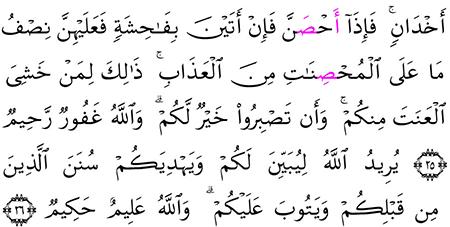 أَخْدَانٍ ۚ فَإِذَآ أَحْصَنَّ فَإِنْ أَتَيْنَ بِفَٰحِشَةٍ فَعَلَيْهِنَّ نِصْفُ
مَا عَلَى ٱلْمُحْصِنَٰتِ مِنَ ٱلْعَذَابِ ۚ ذَٰلِكَ لِمَنْ خَشِىَ
ٱلْعَنَتَ مِنكُمْ ۚ وَأَن تَصْبِرُوا۟ خَيْرٌ لَّكُمْ ۗ وَٱللَّهُ غَفُورٌ رَّحِيمٌ
﴿٢٥﴾ يُرِيدُ ٱللَّهُ لِيُبَيِّنَ لَكُمْ وَيَهْدِيَكُمْ سُنَنَ ٱلَّذِينَ
مِن قَبْلِكُمْ وَيَتُوبَ عَلَيْكُمْ ۗ وَٱللَّهُ عَلِيمٌ حَكِيمٌ ﴿٢٦﴾